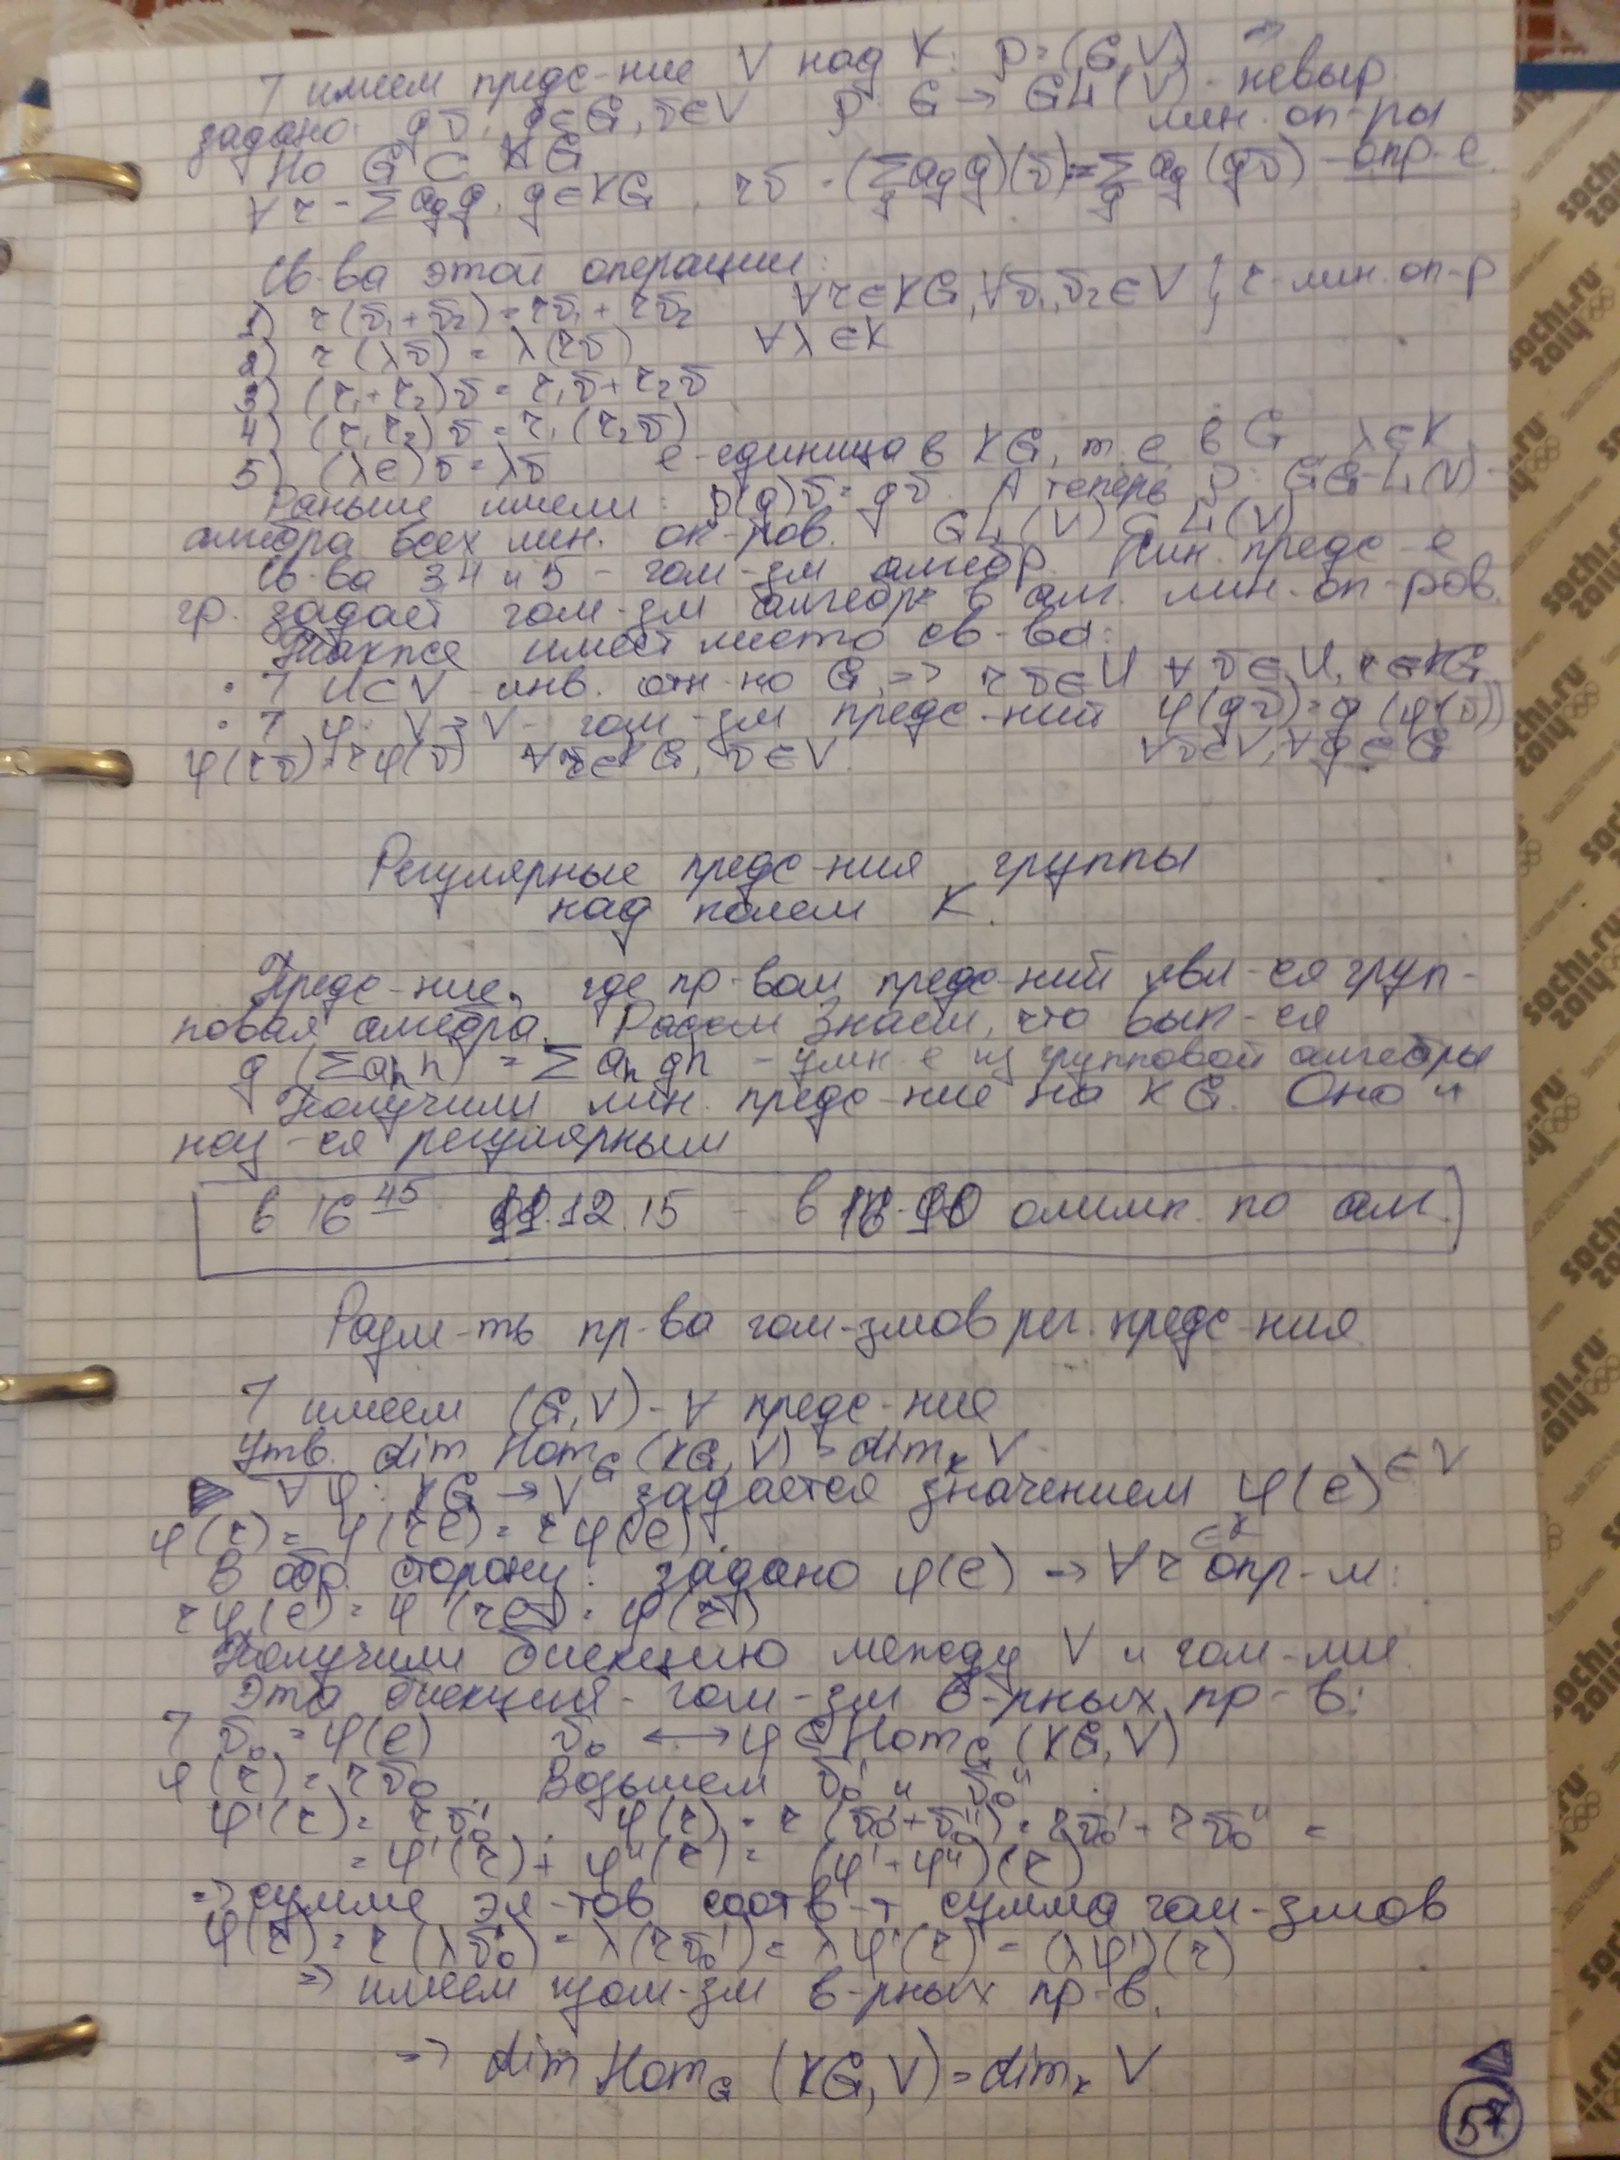 ⅂ имеем предс-ние V над K. ρ = (G, V)
задано: gv̄, g∈G, v̄∈V ρ: G → GL(V) - невыр.
лин. оп-ры
Но G ⊂ KG
∀ r = Σ a_g g, g∈KG, r v̄ = (Σ_g a_g g)(v̄) = Σ_g a_g (g v̄) - опр-е.
Св-ва этой операции:
1) r(v̄₁ + v̄₂) = r v̄₁ + r v̄₂ ∀ r∈KG, ∀ v̄₁, v̄₂ ∈ V } r - лин. оп-р
2) r(λ v̄) = λ(r v̄) ∀ λ ∈ K
3) (r₁ + r₂) v̄ = r₁ v̄ + r₂ v̄
4) (r₁ r₂) v̄ = r₁ (r₂ v̄)
5) (λe) v̄ = λ v̄ e - единица в KG, т.е. в G λ∈K
Раньше имели: ρ(g) v̄ = g v̄. А теперь ρ: G → L(V) -
алгебра всех лин. оп-ров. GL(V) ⊂ L(V)
Св-ва 3, 4 и 5 - гом-зм алгебр. Лин. предс-е
гр. задает гом-зм алгебр в алг. лин. оп-ров.
Также имеет место св-ва:
• ⅂ U⊂V - инв. отн-но G ⇒ r v̄ ∈ U ∀ v̄ ∈ U, r∈KG.
• ⅂ φ: V → V - гом-зм предс-ний φ(g v̄) = g (φ(v̄))
φ(r v̄) = r φ(v̄) ∀ r∈KG, v̄ ∈ V. ∀ v̄∈V, ∀ g∈G
Регулярные предс-ния группы
над полем K.
Предс-ние, где пр-вом предс-ний явл-ся груп-
повая алгебра. Знаем, что вып-ся
g (Σ a_h h) = Σ a_h gh - умн-е из групповой алгебры
Получили лин. предс-ние на KG. Оно и
наз-ся регулярным
в 16 45 .12.15 - в олимп. по алг.
Разм-ть пр-ва гом-змов рег. предс-ния
⅂ имеем (G, V) - ∀ предс-ние
Утв. dim Hom_G (KG, V) = dim_K V
▷ ∀ φ: KG → V задается значением φ(e) ∈ V
φ(r) = φ(re) = r φ(e).
В обр. сторону: задано φ(e) → ∀ r опр-м:
r φ(e) = φ (re) = φ(r)
Получили биекцию между V и гом-ми
Эта биекция - гом-зм в-рных пр-в:
⅂ v̄₀ = φ(e) v̄₀ ⟷ φ ∈ Hom_G (KG, V)
φ(r) = r v̄₀ Возьмем v̄₀' и v̄₀''.
φ'(r) = r v̄₀'. φ(r) = r (v̄₀' + v̄₀'') = r v̄₀' + r v̄₀'' =
= φ'(r) + φ''(r) = (φ' + φ'')(r)
⇒ сумме эл-тов соотв-т сумма гом-змов
φ(r) = r (λ v̄₀') = λ(r v̄₀') = λ φ'(r) = (λφ')(r)
⇒ имеем изом-зм в-рных пр-в.
⇒ dim Hom_G (KG, V) = dim_K V
57
sochi.ru
2014